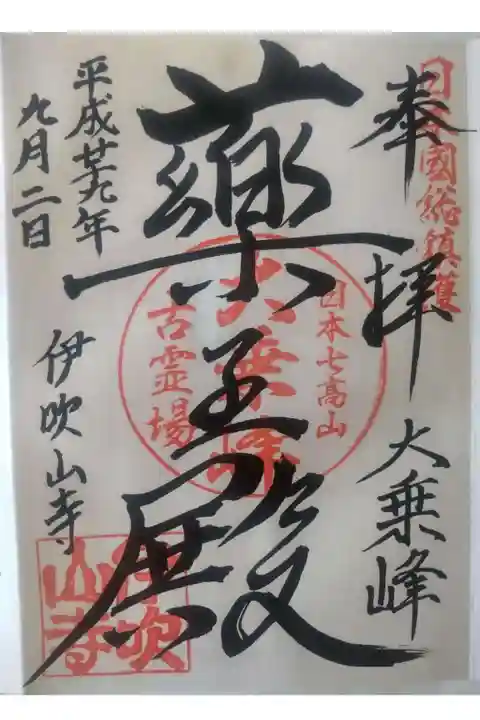 日本國総鎮護
奉拝 大乗峰
薬王殿
日本七高山
大乗峰
古霊場
平成廿九年
九月二日
伊吹山寺
伊吹山寺